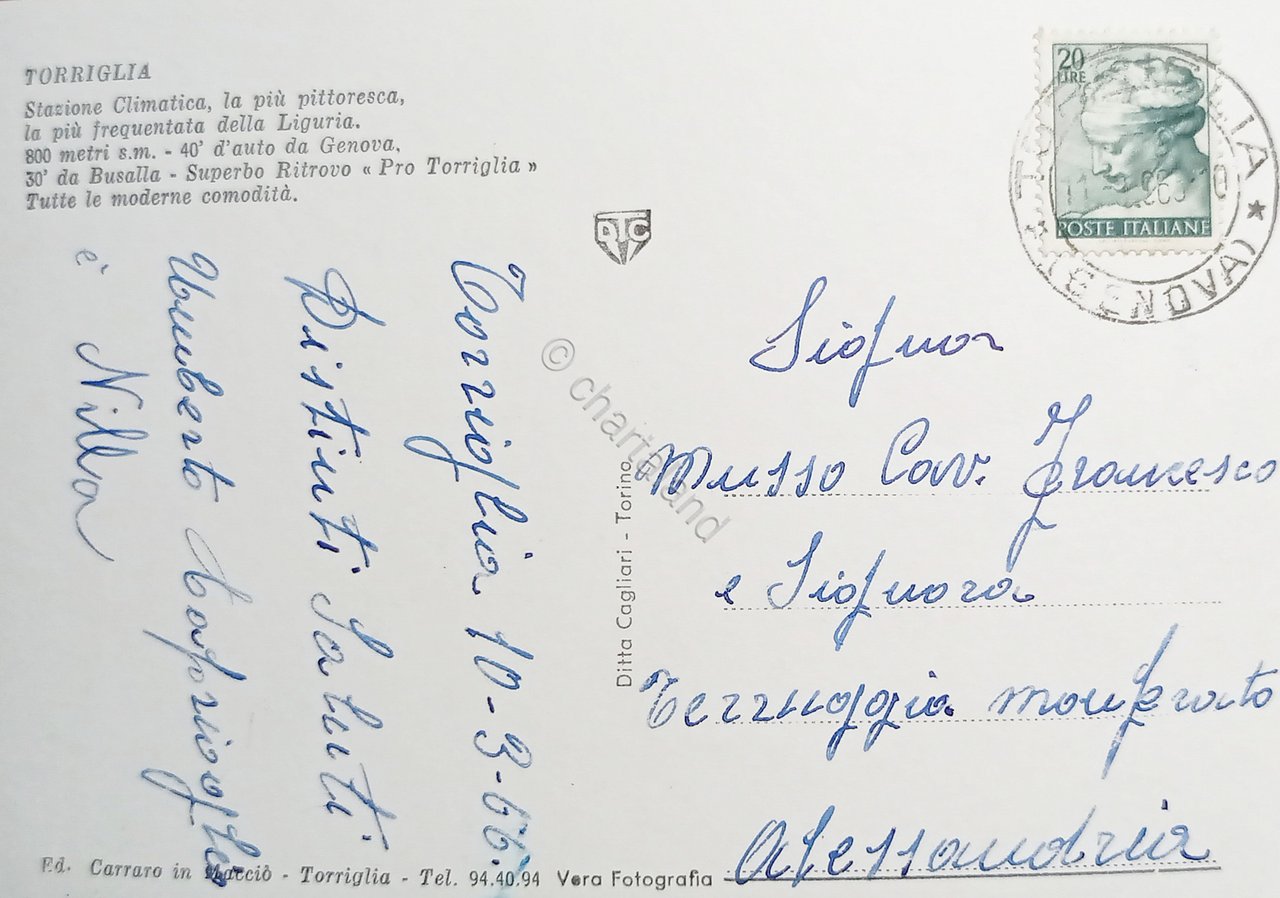 TORRIGLIA
Stazione Climatica, la più pittoresca,
la più frequentata della Liguria.
800 metri s.m. - 40' d'auto da Genova,
30' da Busalla - Superbo Ritrovo « Pro Torriglia »
Tutte le moderne comodità.
Torriglia 10-3-66.
Distinti Saluti
Umberto
è Nilla
Ed. Carraro in Macciò - Torriglia - Tel. 94.40.94 Vera Fotografia
RTC
Ditta Cagliari - Torino
© chartaland
20
LIRE
POSTE ITALIANE
TORRIGLIA
(GENOVA)
Signor
Musso Cav. Francesco
e Signora
Terruggia monferrato
Alessandria